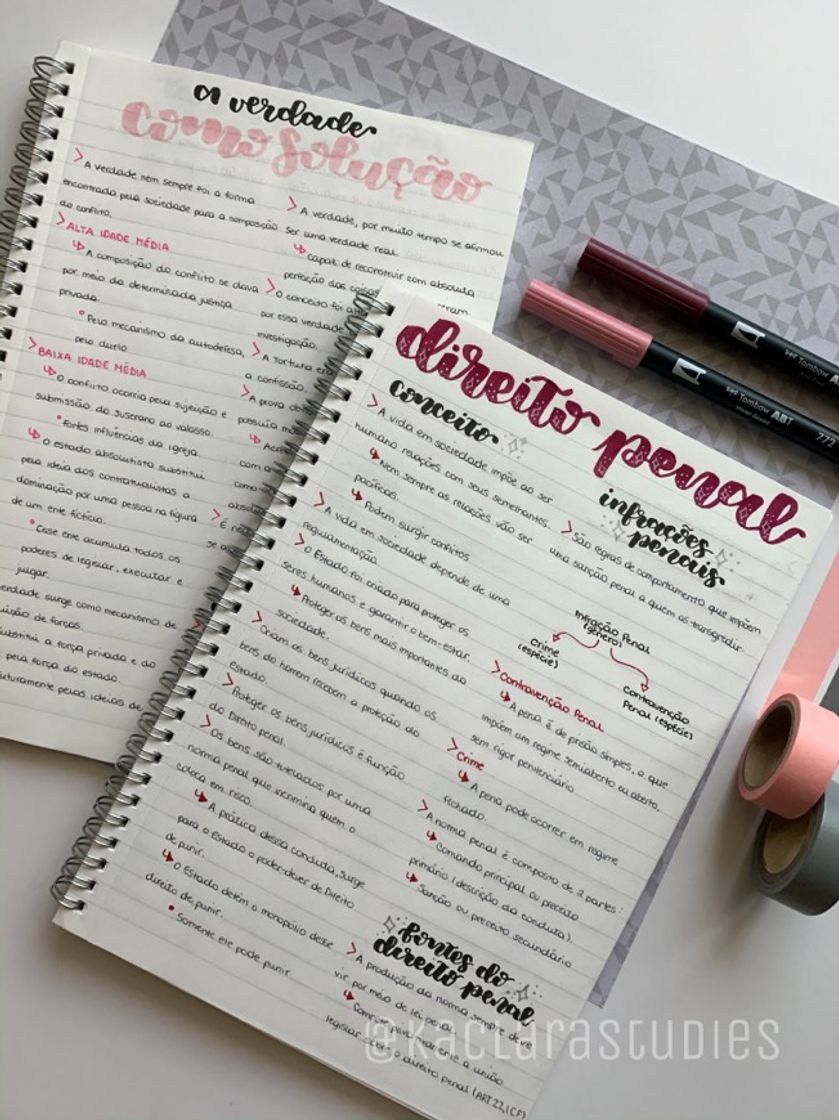 a verdade
como solução
A verdade nem sempre foi a forma
encontrada pela sociedade para a composição
do conflito.
ALTA IDADE MÉDIA
A composição do conflito se dava
por meio da determinada justiça
privada.
Pelo mecanismo da autodefesa,
pelo duelo
BAIXA IDADE MÉDIA
O conflito ocorria pela sujeição e
submissão do suserano ao valasso.
Fortes influências da igreja.
O estado absolutista substitui
pela ideia dos contratualistas a
dominação por uma pessoa na figura
de um ente fictício.
Esse ente acumula todos os
poderes de legislar, executar e
julgar.
verdade surge como mecanismo de
de forças.
substitui a força privada e do
pela força do estado.
futuramente pelas ideias de
A verdade, por muito tempo se afirmou
ser uma verdade real.
capaz de reconstruir com absoluta
perfeição das coisas
O conceito foi
por essa verdade
investigação.
A tortura era
a confissão.
A prova
possuía
com a
como
É
se
direito penal
conceito
A vida em sociedade impõe ao ser
humano relações com seus semelhantes.
Nem sempre as relações vão ser
pacíficas.
Podem surgir conflitos
A vida em sociedade depende de uma
regulamentação.
O Estado foi criado para proteger os
seres humanos e garantir o bem-estar.
Proteger os bens mais importantes da
sociedade.
Criam os bens jurídicos quando os
bens do homem recebem a proteção do
estado.
Proteger os bens jurídicos é função
do Direito penal.
Os bens são tutelados por uma
norma penal que incrimina quem o
coloca em risco.
A prática dessa conduta, surge
para o Estado o poder-dever de Direito
de punir.
O Estado detém o monopólio desse
direito de punir.
Somente ele pode punir.
infrações
penais
São regras de comportamento que impõem
uma sanção penal a quem as transgredir.
Infração Penal
(gênero)
Crime
(espécie)
Contravenção
Penal (espécie)
Contravenção Penal
A pena é de prisão simples, o que
impõem um regime semiaberto ou aberto,
sem rigor penitenciário
Crime
A pena pode ocorrer em regime
fechado.
A norma penal é composta de 2 partes:
Comando principal ou preceito
primário (descrição da conduta).
Sanção ou preceito secundário
fontes do
direito penal
A produção da norma sempre deve
vir por meio de lei penal.
Compete privativamente a união
legislar sobre o direito penal (ART 22, I CF)
Tombow ABT
Tombow ABT
772
@kaclarastudies